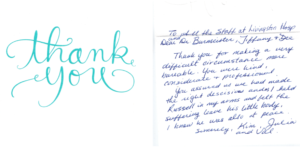 thank
you
To all the Staff at Livingston Vet
Dear Dr. Burmeister, Tiffany & Dee
Thank you for making a very
difficult circumstance more
bearable. You were kind,
considerate & professional
You assured us we had made
the right decision and I held
Russell in my arms and felt the
suffering leave his little body.
I know he was at peace
Sincerely, Julia
and